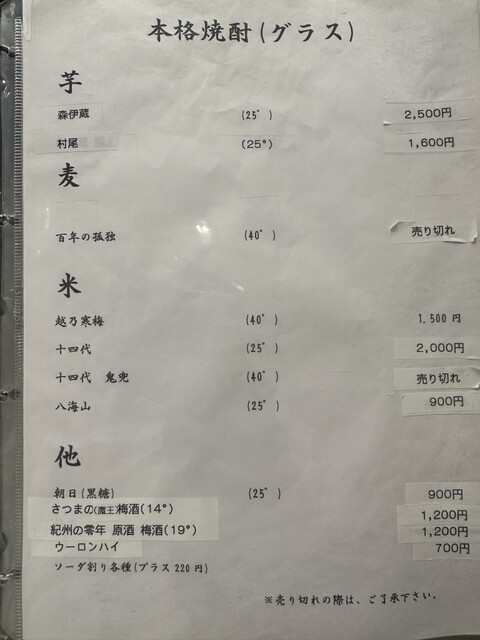 本格焼酎(グラス)
芋
森伊蔵 (25°) 2,500円
村尾 (25°) 1,600円
麦
百年の孤独 (40°) 売り切れ
米
越乃寒梅 (40°) 1,500円
十四代 (25°) 2,000円
十四代 鬼兜 (40°) 売り切れ
八海山 (25°) 900円
他
朝日(黒糖) (25°) 900円
さつまの(魔王)梅酒(14°) 1,200円
紀州の零年 原酒 梅酒(19°) 1,200円
ウーロンハイ 700円
ソーダ割り各種(プラス220円)
※売り切れの際は、ご了承下さい。